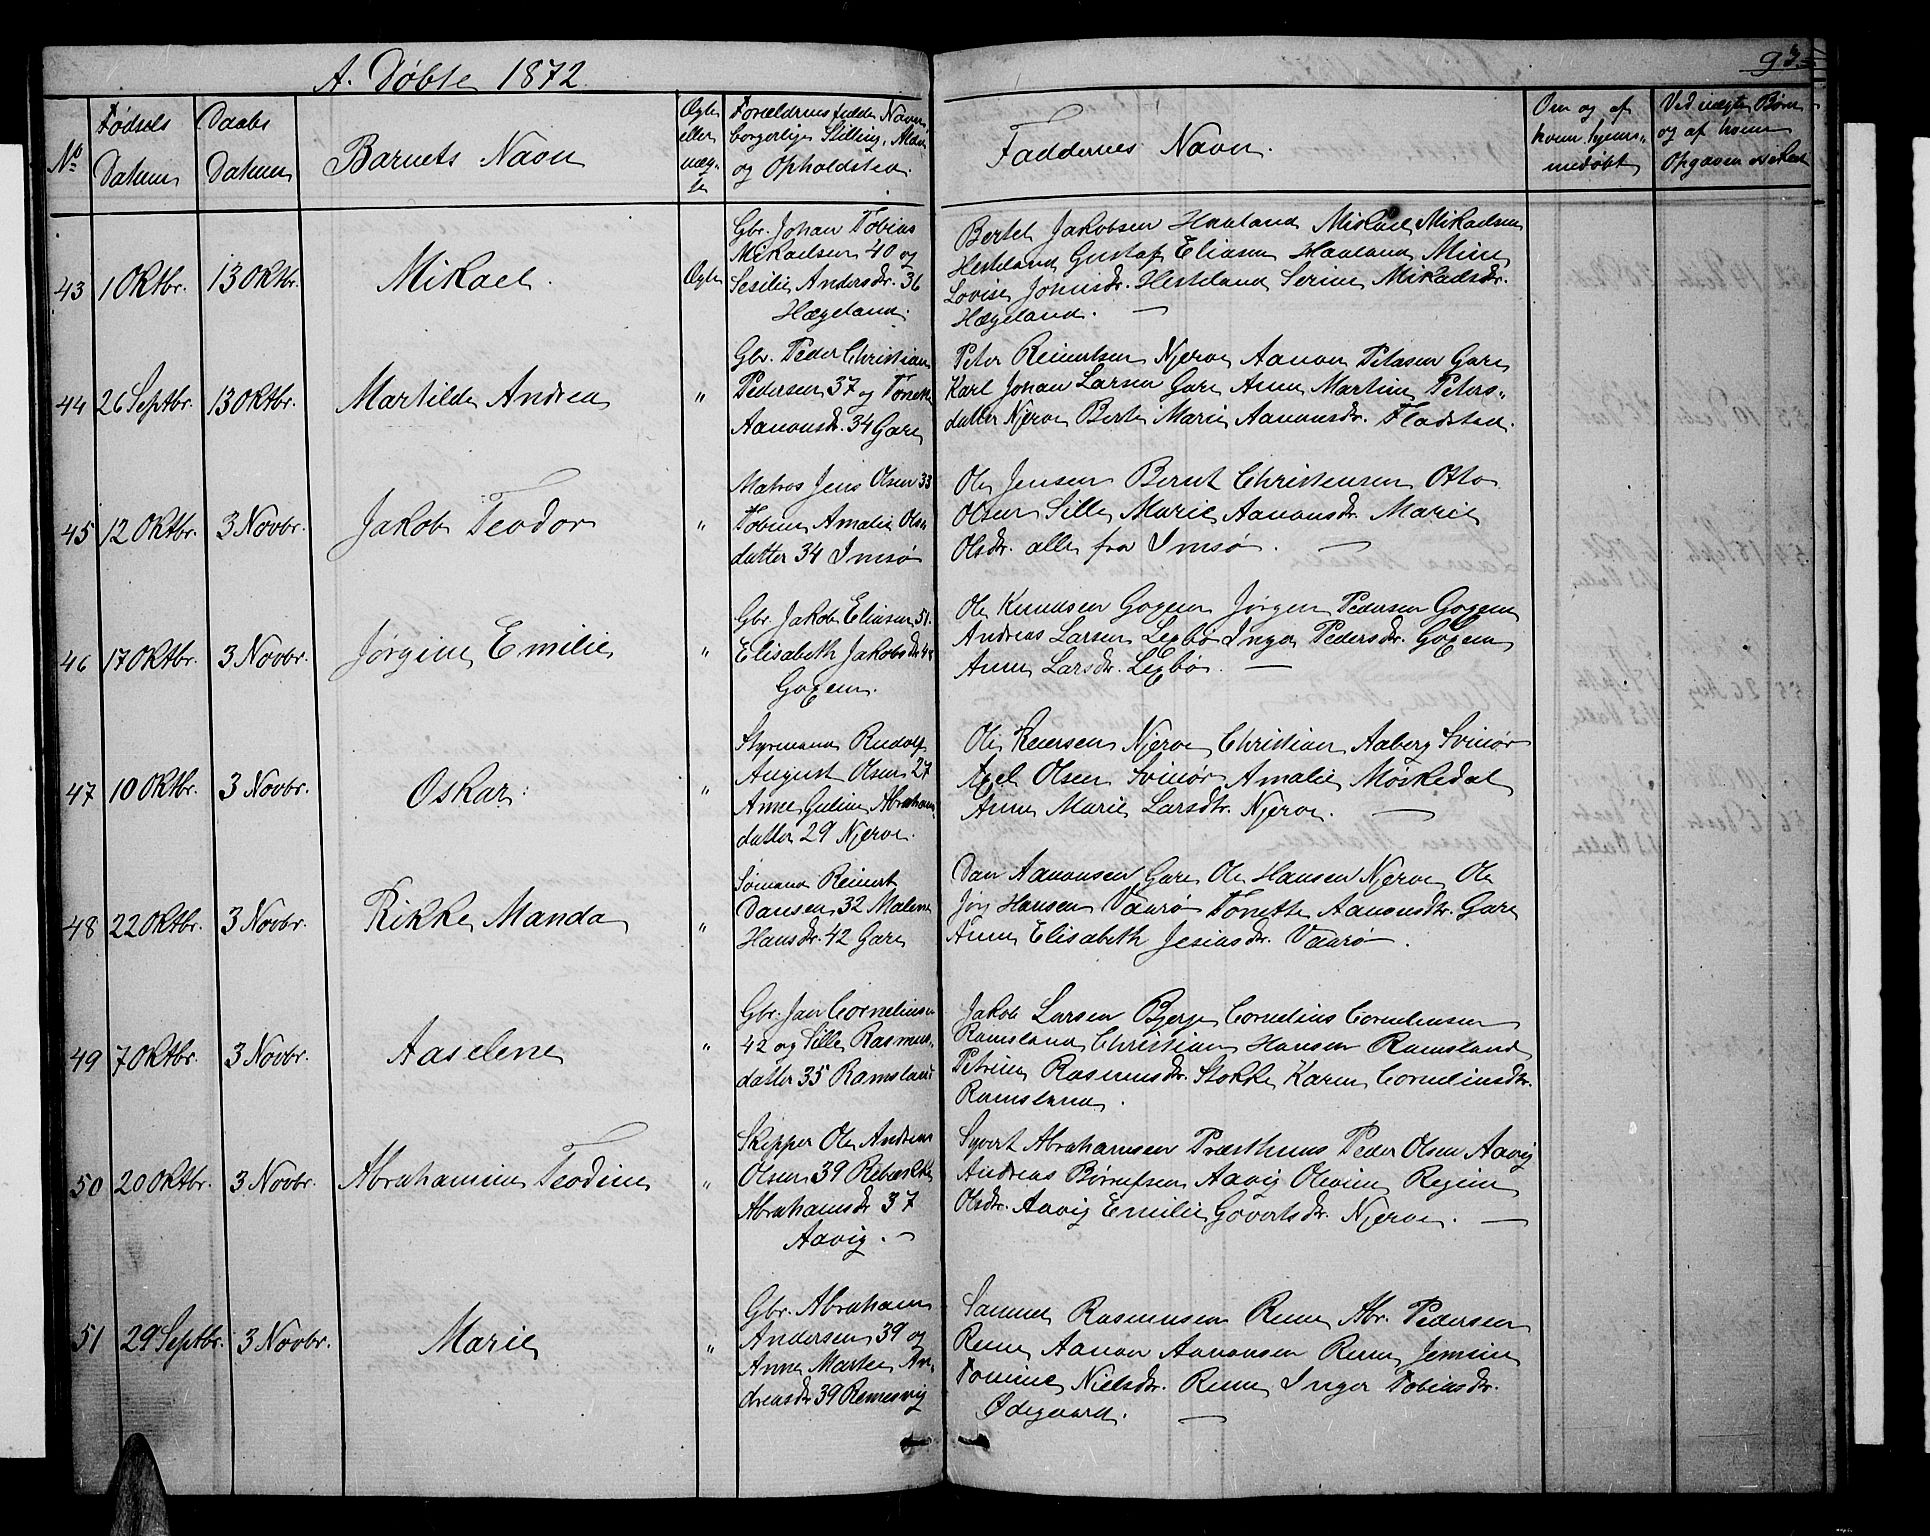 A. Døbte 1872.
93
No
Fødsels Datum
Daabs Datum
Barnets Navn
Ægte eller uægte
Forældrenes fulde Navn, borgerlige Stilling, Alder og Opholdsted.
Faddernes Navn.
Om og af hvem hjemmedøbt
Ved uægte Børn og af hvem Opgaven
43 1 Oktbr. 13 Oktbr. Mikael. Ægte
Gbr. Johan Tobias
Mikaelsen 40 og
Sesilie Andersdr. 36
Hægeland.
Bertel Jakobsen Haaland Mikael Mikaelsen
Hesteland Gustaf Eliasen Haaland Mine
Lovise Jonasdr. Hesteland Serine Mikaelsdr.
Hægeland. —
44 26 Septbr. 13 Oktbr. Martilde Andrea "
Gbr. Peder Christian
Pedersen 37 og Tonette
Aanonsdr. 34 Gare
Peter Reinertsen Njerve Aanon Petasen Gare
Karl Johan Larsen Gare Anne Martine Peters-
datter Njerve Berte Marie Aanonsdr. Fladstad.
45 12 Oktbr. 3 Novbr. Jakob Teodor "
Matros Jens Olsen 33
Tobine Amalie Ols-
datter 34 Imsø
Ole Jensen Bernt Christensen Otto
Olsen Sille Marie Aanonsdr. Marie
Olsdr. alle fra Imsø. —
46 17 Oktbr. 3 Novbr. Jørgine Emilie "
Gbr. Jakob Eliasen 51.
Elisabeth Jakobsdr 44
Goxem.
Ole Knudsen Goxem Jørgen Pedersen Goxem
Andreas Larsen Lexbø Inger Pedersdr. Goxem
Anne Larsdr. Lexbø. —
47 10 Oktbr. 3 Novbr. Oskar. "
Styrmand Rudolf
August Olsen 27
Anne Guline Abraham-
datter 29 Njerve.
Ole Reiersen Njerve Christian Aaberg Svinør
Axel Olsen Svinør Amalie Møskedal
Anne Marie Larsdtr. Njerve. —
48 22 Oktbr. 3 Novbr. Rikke Manda "
Sømand Reinert
Dansen 32 Malene
Hansdr. 42 Gare
Dan Aanonsen Gare Ole Hansen Njerve Ole
Jørg Hansen Vaarø Tonette Aanonsdtr. Gare
Anne Elisabeth Jesiasdr. Vaarø.
49 7 Oktbr. 3 Novbr. Aaselene "
Gbr. Jan Cornelius
42 og Sille Rasmus-
datter 35 Ramsland
Jakob Larsen Bjerge Cornelius Corneliusen
Ramsland Christian Hansen Ramsland
Petrine Rasmusdr. Stokke Karen Corneliusdtr.
Ramsland.
50 20 Oktbr. 3 Novbr. Abrahamine Teodine "
Skipper Ole Andreas
Olsen 39 Rebækka
Abrahamsdr 37
Aavig. —
Syvert Abrahamsen Præsthuus Peder Olsen Aavig
Andreas Børufsen Aavig Olevine Regine
Olsdtr. Aavig Emilie Govertsdr. Njerve. —
51 29 Septbr. 3 Novbr. Marie "
Gbr. Abraham
Andersen 39 og
Anne Martea An-
dreasdr 39 Remesvig
Samuel Rasmussen Reme Abr. Pedersen
Reme Aanon Aanonsen Reme Jensine
Tomine Nielsdtr. Reme Inger Tobiasdr.
Ødegaard. —